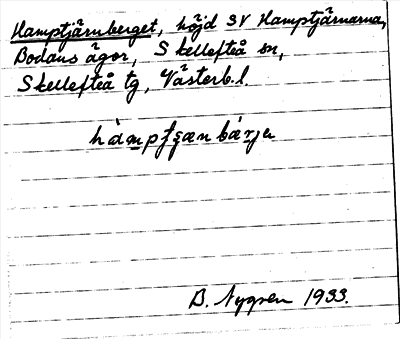 Hamptjärnberget, höjd SV Hamptjärnarna,
Bodans ägor, Skellefteå sn,
Skellefteå tg, Västerb. l.
B. Nygren 1933.